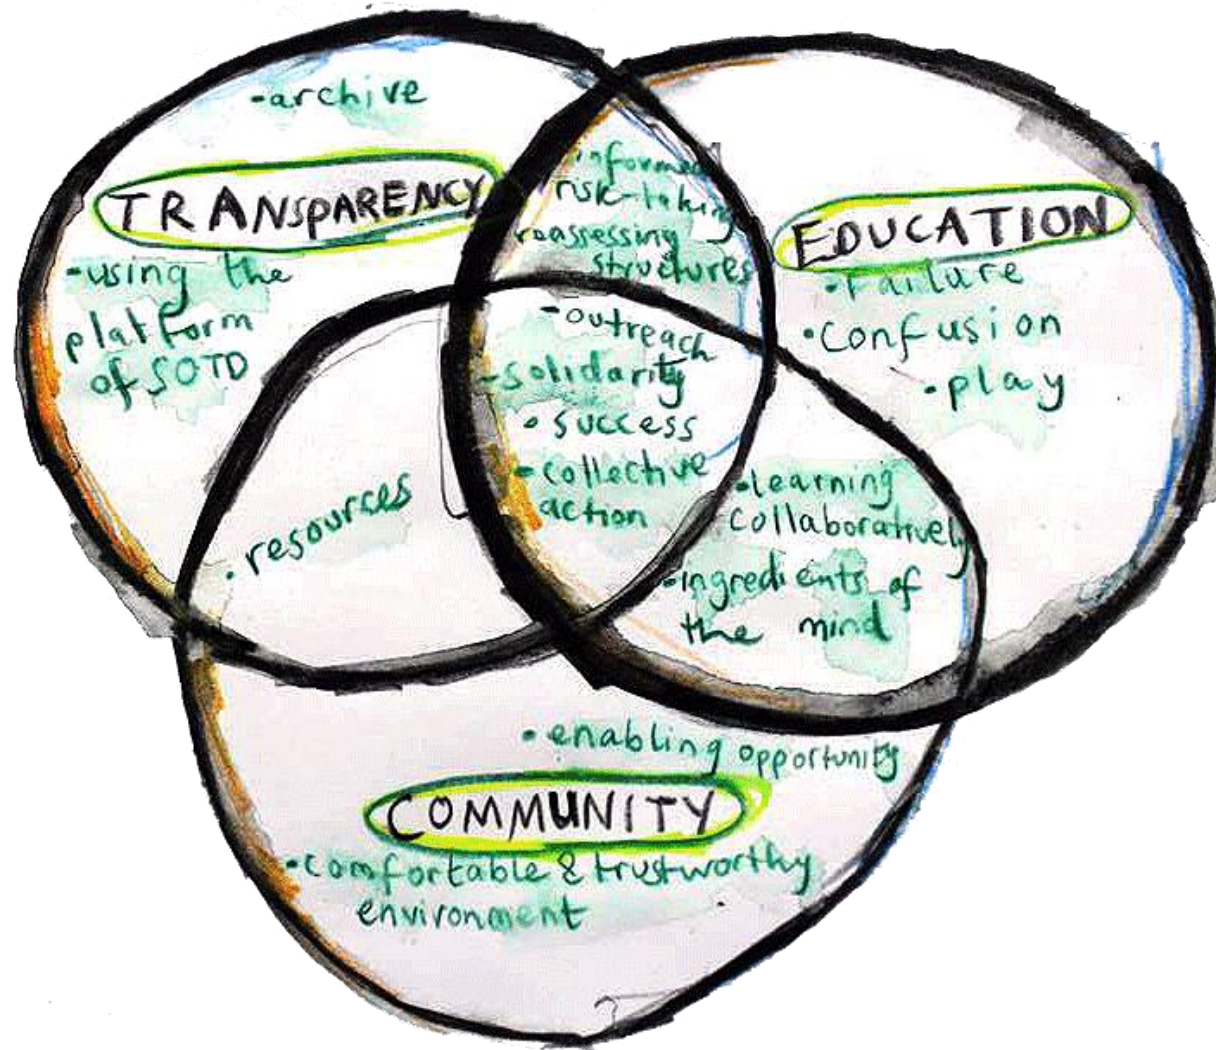 -archive
TRANSPARENCY
-using the
platform
of SOTD
informed
risk-taking
reassessing
structures
EDUCATION
•Failure
•confusion
•play
-outreach
-solidarity
•success
•collective
action
•resources
•learning
collaboratively
•ingredients of
the mind
•enabling opportunity
COMMUNITY
•comfortable & trustworthy
environment